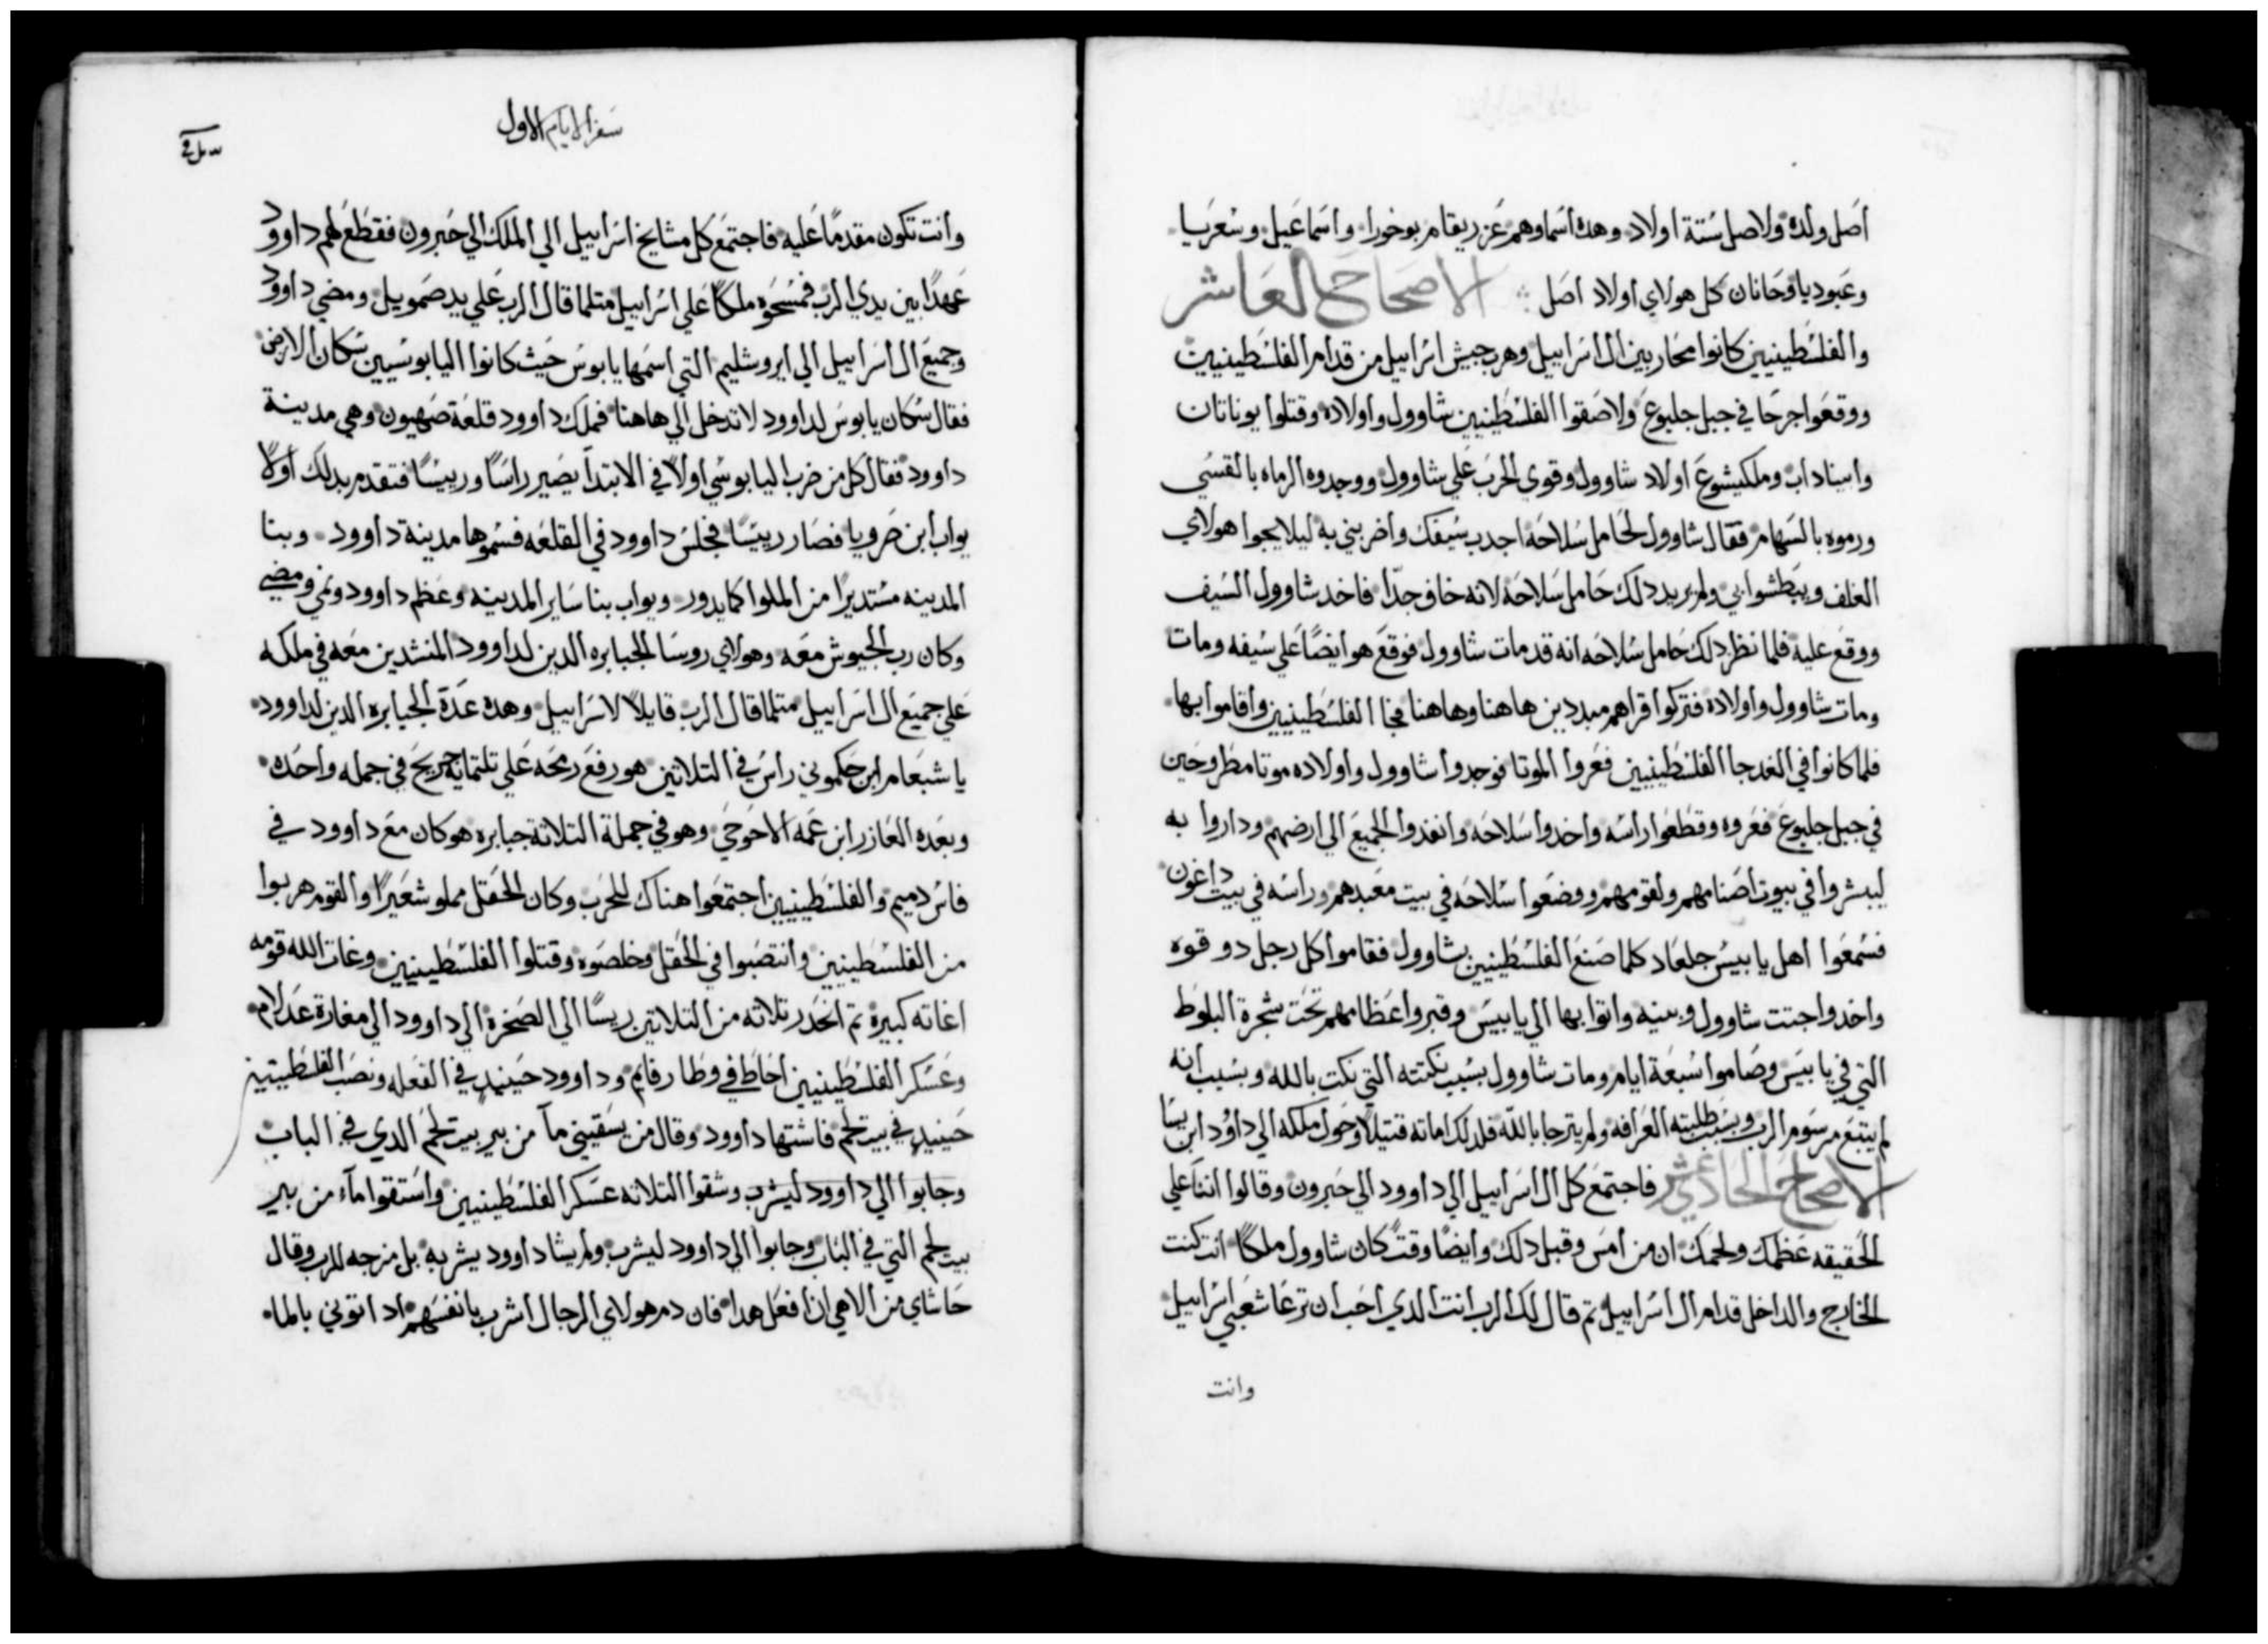 أصل ولده ولاصل ستة اولاد وهده أسماوهم عزريقام بوخورا وأسماعيل وسعريا
وعبوديا وحانان كل هولاي أولاد أصل الاصحاح العاشر
والفلسطينيين كانوا محاربين ال اسراييل وهرب جيش اسراييل من قدام الفلسطينيين
ووقعوا جرحا في جبل جلبوع ولاصقوا الفلسطينيين شاوول وأولاده وقتلوا يوناتان
وابيناداب وملكيشوع اولاد شاوول وقوي الحرب علي شاوول ووجدوه الرماه بالقسي
ورموه بالسهام فقال شاوول لحامل سلاحه اجدب سيفك وأضربني به ليلا يجوا هولاي
الغلف ويبطشوا بي ولم يريد دلك حامل سلاحه لانه خاف جدا فاخد شاوول السيف
ووقع عليه فلما نظر دلك حامل سلاحه انه قد مات شاوول فوقع هو ايضا علي سيفه ومات
ومات شاوول وأولاده فتركوا قراهم مبددين هاهنا وهاهنا فجا الفلسطينيين وأقاموا بها
فلما كانوا في الغد جا الفلسطينيين فعروا الموتا فوجدوا شاوول وأولاده موتا مطروحين
في جبل جلبوع فعروه وقطعوا راسه واخدوا سلاحه وانفدوا الجميع الي ارضهم وداروا به
ليبشروا في بيوت اصنامهم ولقومهم ووضعوا سلاحه في بيت معبدهم وراسه في بيت داغون
فسمعوا أهل يابيس جلعاد كلما صنع الفلسطينيين بشاوول فقاموا كل رجل دو قوه
واخدوا جتت شاوول وبنيه واتوا بها الي يابيس وقبروا عظامهم تحت شجرة البلوط
التي في يابيس وصاموا سبعة ايام ومات شاوول بسبب نكتته التي نكت بالله وبسبب أنه
لم يتبع مرسوم الرب وبسبب طلبته العرافه ولم يترجا بالله فلدلك اماته قتيلا وحول ملكه الي داوُد ابن يسا
الاصحاح الحادي عشر فاجتمع كل ال اسراييل الي داوود الي حبرون وقالوا اننا علي
الحقيقه عظمك ولحمك ان من أمس وقبل دلك وايضا وقت كان شاوول ملكا انت كنت
الخارج والداخل قدام ال اسراييل تم قال لك الرب انت الدي أحب ان ترعا شعبي اسراييل
وانت
سفر الايام الاول
وأنت تكون مقدما عليه فاجتمع كل مشايخ اسراييل الي الملك الي حبرون فقطع لهم داوود
عهدا بين يدي الرب فمسحوه ملكا علي اسراييل متلما قال الرب علي يد صمويل ومضي داوود
وجميع ال أسراييل الي ايروشليم التي اسمها يابوس حيث كانوا اليابوسيين سكان الارض
فقال سكان يابوس لداوود لا تدخل الي هاهنا فملك داوود قلعة صهيون وهي مدينة
داوود فقال كل من ضرب اليابوسي اولا في الابتدا يصير راسا ورييسا فتقدم بدلك أولا
يواب أبن ضرويا فصار رييسا فجلس داوود في القلعه فسموها مدينة داوود وبنا
المدينه مستديرا من الملوا كما يدور ويواب بنا ساير المدينه وعظم داوود ونمي ومضي
وكان رب الجيوش معه وهولاي روسا الجبابره الدين لداوود المنشدين معه في ملكه
علي جميع ال اسراييل متلما قال الرب قايلا لاسراييل وهده عدة الجبابره الدين لداوود
ياشبعام ابن حكموني راس في التلاتين هو رفع رمحه علي تلتماية جريح في جمله واحده
وبعده العازر ابن عمه الاحوحي وهو في جملة التلاتة جبابره هو كان مع داوود في
فاس دميم والفلسطينيين أجتمعوا هناك للحرب وكان الحقل مملو شعيرا والقوم هربوا
من الفلسطينيين وأنتصبوا في الحقل وخلصوه وقتلوا الفلسطينيين وغات الله قومه
اغاته كبيرة تم انحدر تلاته من التلاتين ريسا الي الصخرة الي داوود الي مغارة عدلام
وعسكر الفلسطينيين أحاط في وطا رفايم وداوود حينيد في القعله ونصب الفلسطينيين
حينيد في بيت لحم فاشتها داوود وقال من يسقيني مآ من بير بيت لحم الدي في الباب
وجابوا الي داوود ليشرب وشقوا التلاته عسكر الفلسطينيين واستقوا مآء من بير
بيت لحم التي في الباب وجابوا الي داوود ليشرب ولم يشا داوود يشربه بل مزجه للرب وقال
حاشاي من الاهي ان أفعل هدا فان دم هولاي الرجال أشرب بانفسهم اد اتوني بالما